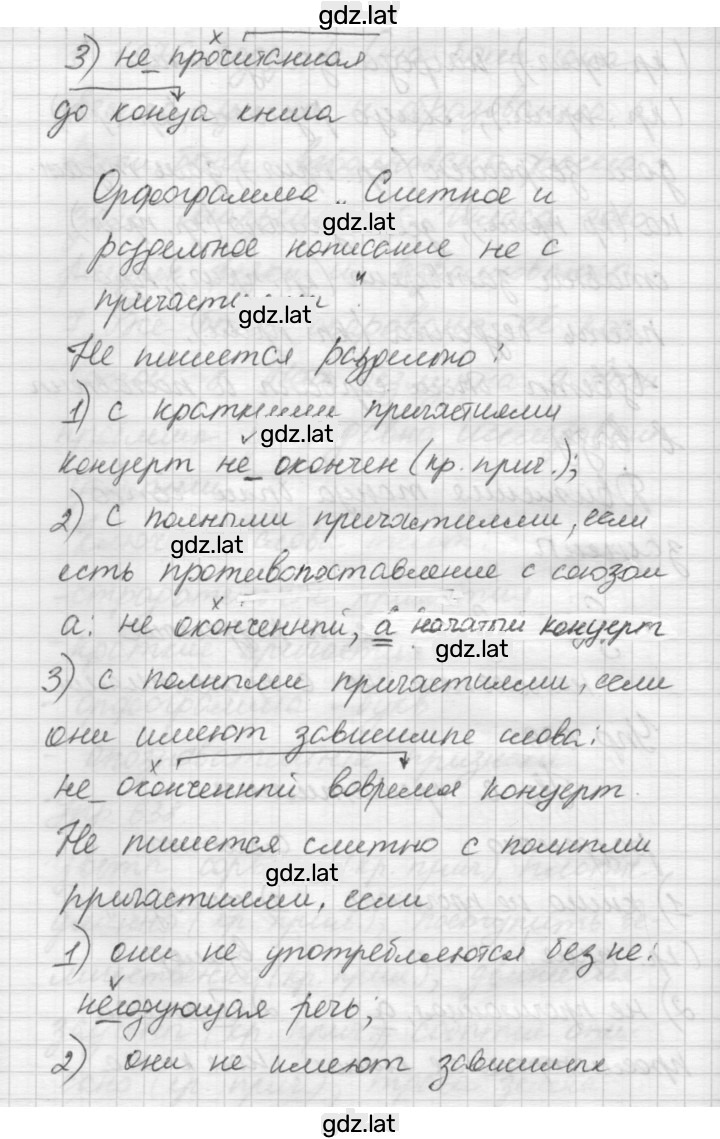 gdz.lat
3) не прочитанная
до конца книга
Орфограмма „Слитное и
gdz.lat
раздельное написание не с
причастиями"
gdz.lat
Не пишется раздельно:
1) с краткими причастиями
gdz.lat
концерт не окончен (кр. прич.);
2) с полными причастиями, если
gdz.lat
есть противопоставление с союзом
а: не оконченный, а начатый концерт
gdz.lat
3) с полными причастиями, если
они имеют зависимые слова:
не оконченный вовремя концерт
Не пишется слитно с полными
gdz.lat
причастиями, если
1) они не употребляются без не:
негодующая речь;
2) они не имеют зависимых
gdz.lat